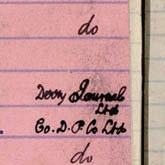 do
Derry Journal
Ltd
Co. D. P. Co Ltd
do